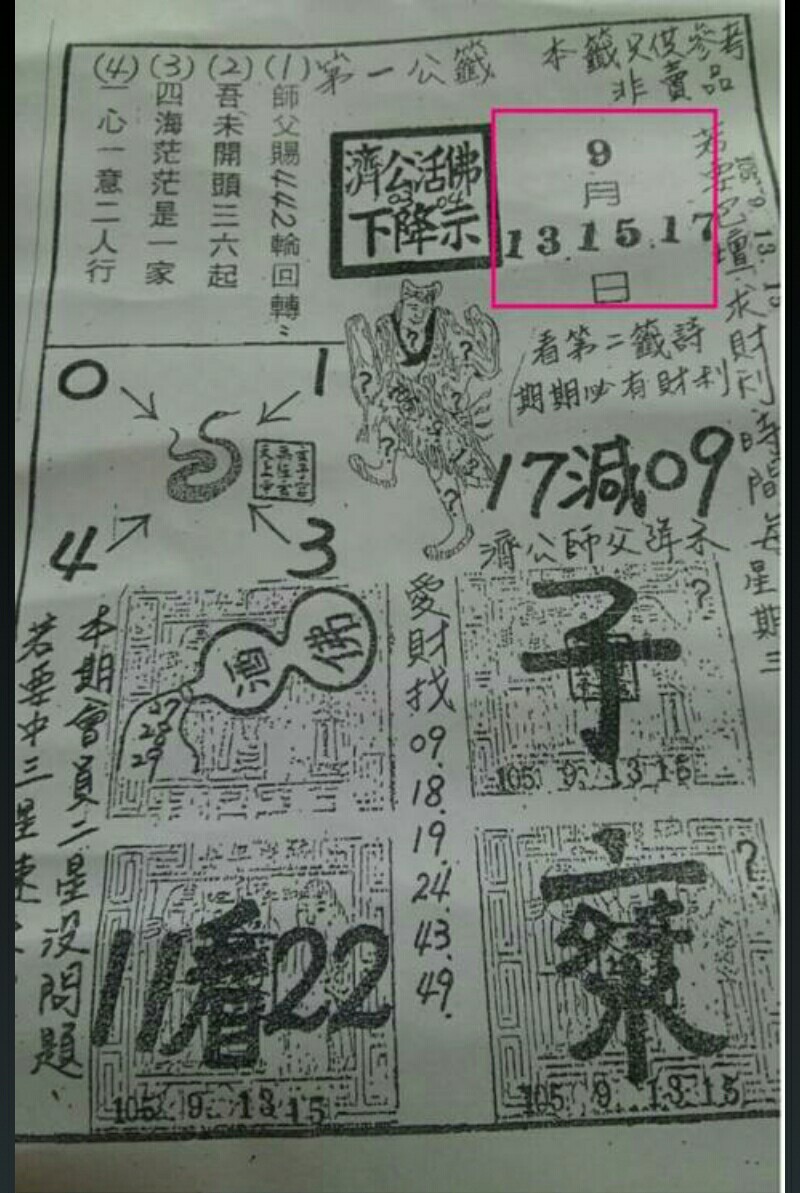 第一公籤
本籤只供參考
非賣品
(1) 師父賜4442輪回轉"
(2) 吾未開頭三六起
(3) 四海茫茫是一家
(4) 一心一意二人行
濟公活佛
03 04
下降示
9
月
13.15.17
日
105 9 13 15
求財利時間每星期三
看第二籤詩
期期必有財利
0
1
4
3
17減09
濟公師父詳示
酒佛
27
28
29
愛財找
09.
18.
19.
24.
43.
49.
子
?
105 9 13 15
11看22
105 9 13 15
?
105 9 13 15
本期會員二星沒問題
若要中三星